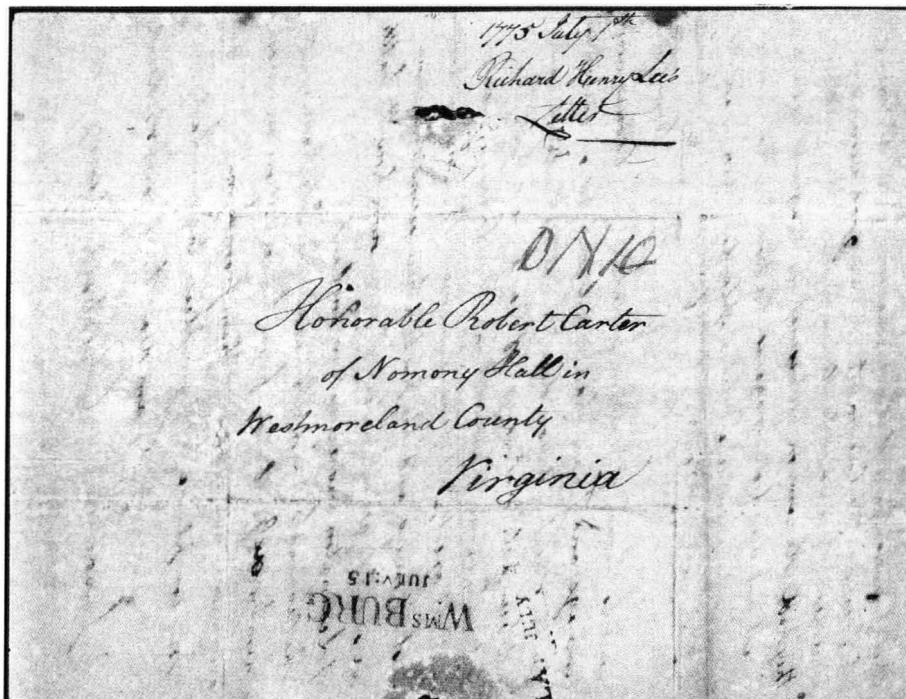 1775 July 1th
Richard Henry Lee's
Letter
Honorable Robert Carter
of Nomony Hall in
Westmoreland County
Virginia
WMSBURG
JULY:15